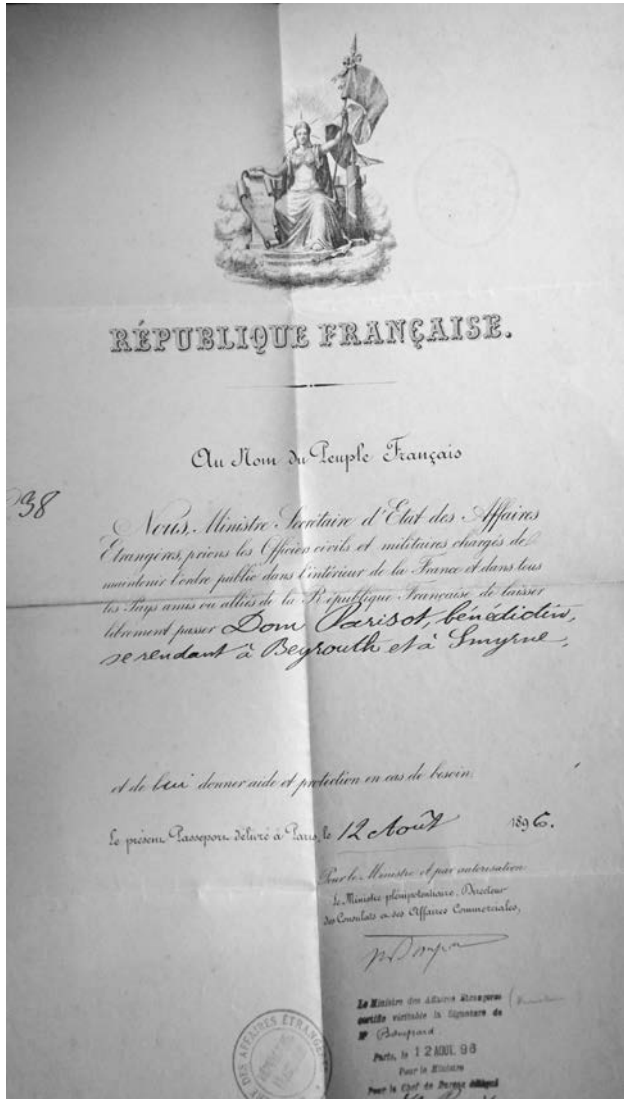 RÉPUBLIQUE FRANÇAISE.
Au Nom du Peuple Français
38
Nous, Ministre Secrétaire d'Etat des Affaires
Etrangères, prions les Officiers civils et militaires chargés de
maintenir l'ordre public dans l'intérieur de la France et dans tous
les Pays amis ou alliés de la République Française de laisser
librement passer Dom Parisot, bénédictin,
se rendant à Beyrouth et à Smyrne,
et de lui donner aide et protection en cas de besoin.
Le présent Passeport délivré à Paris, le 12 Août 1896.
Pour le Ministre et par autorisation
Le Ministre plénipotentiaire, Directeur
des Consulats et des Affaires Commerciales,
Le Ministre des Affaires Etrangères
certifie véritable la Signature de
Mr Bompard
Paris, le 12 AOUT. 96
Pour le Ministre
Pour le Chef de Bureau délégué
DES AFFAIRES ÉTRANGÈRES